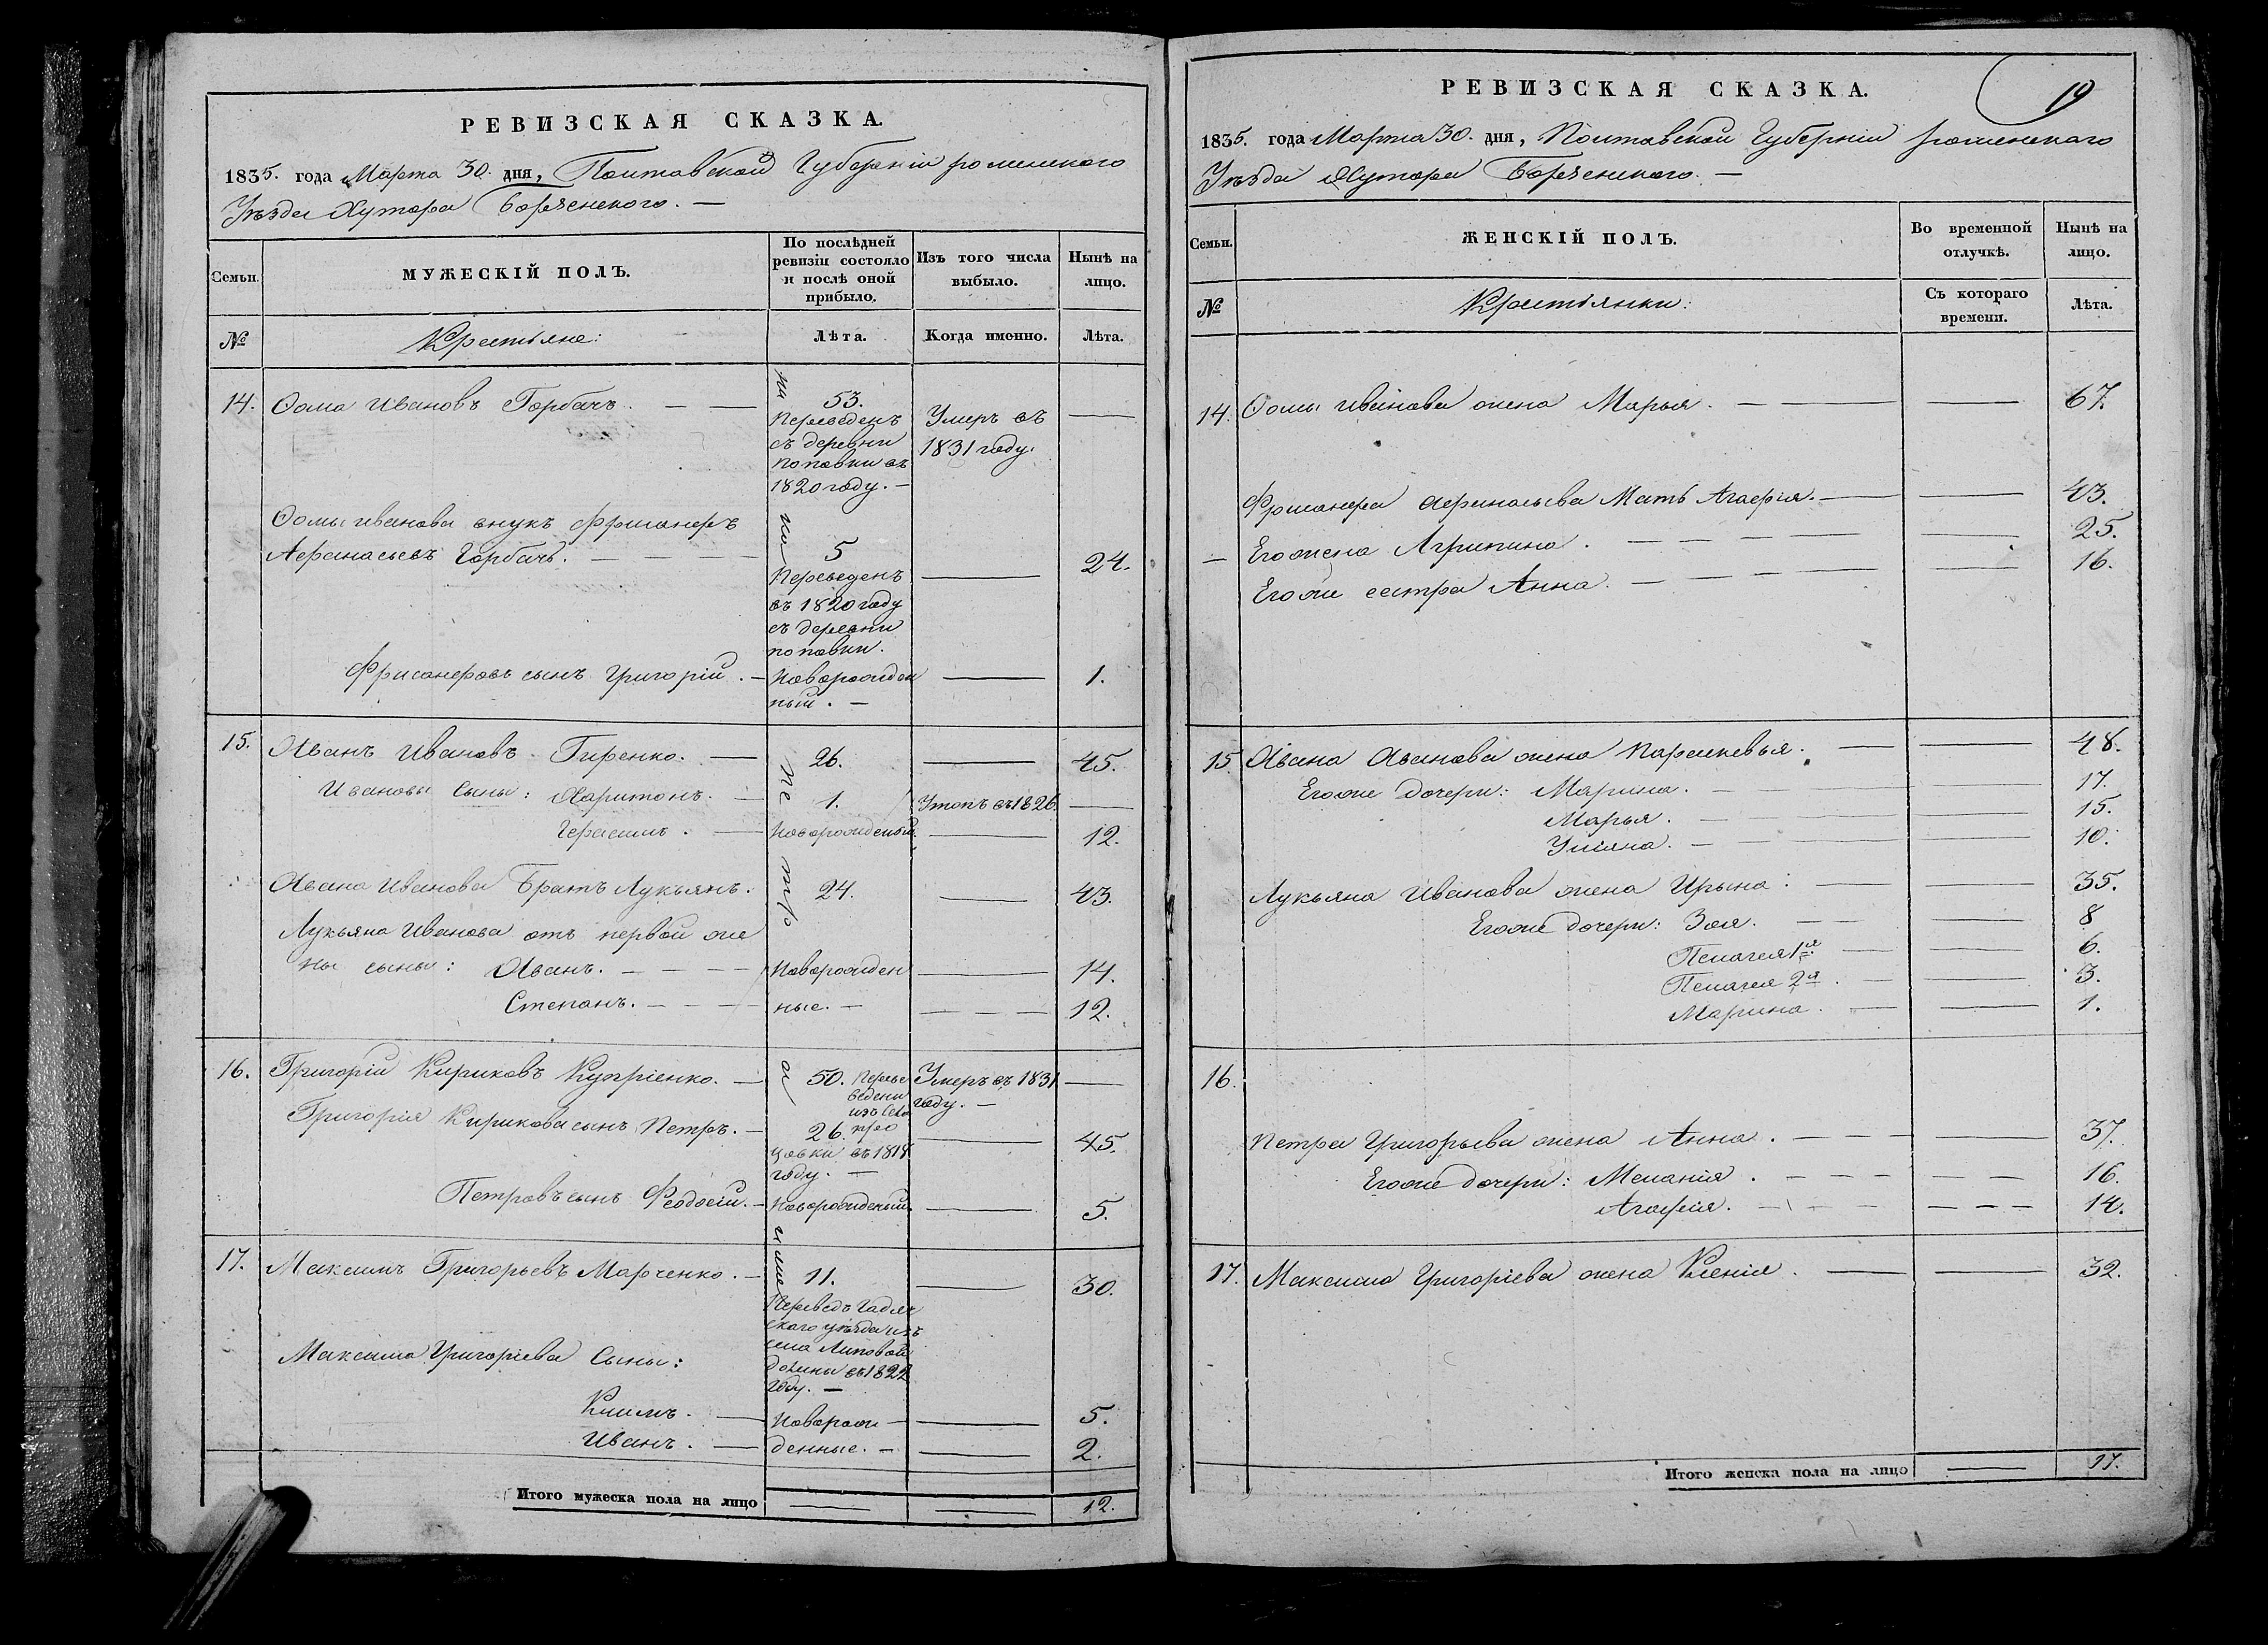 РЕВИЗСКАЯ СКАЗКА.
1835. года Марта 30. дня, Полтавской Губерніи роменского
Уѣзда Хутора
МУЖЕСКІЙ ПОЛЪ.
По послѣдней ревизіи состояло и послѣ оной прибыло.
Изъ того числа выбыло.
Нынѣ на лицо.
Семьи.
№
Крестьяне:
Лѣта.
Когда именно.
Лѣта.
14. Ѳома Ивановъ Горбачъ. — — 53. Умеръ въ —
Переведенъ 1831 году.
съ деревни
поповки въ
1820 году. —
Ѳомы иванова внукъ
Афанасьевъ Горбачъ. — — — 5 — 24.
Переведенъ
въ 1820 году
съ деревни
поповки.
сынъ Григорій. — Новорожден — 1.
ный. —
15. Иванъ Ивановъ Гиренко. — 26. — 45.
Ивановы Сыны: Харитонъ. — 1. Утопъ въ 1826. —
Герасимъ. — Новорожденый. — 12.
Ивана Иванова Братъ Лукьянъ. 24. — 43.
Лукьяна Иванова отъ первой же
ны сыны: Иванъ. — — — Новорожден — 14.
Степанъ. — — — ные. — — — — 12.
16. Григорій Кириковъ Купріенко. — 50. Переве Умеръ въ 1831 —
дени году. —
изъ Села
Григорія Кирикова сынъ Петръ. — 26. — 45.
цовки въ 1818
году. —
Петровъ сынъ Феодосій. — Новорожденый. — 5.
17. Максимъ Григорьевъ Марченко. — 11. — 30.
Переведъ Гадяч
ского уѣзда изъ
села Липовой
Максима Григоріева Сыны:
долины въ 1822
году. —
Климъ. — Новорож — — 5.
Иванъ. — денные. — — 2.
Итого мужеска пола на лицо — — 12.
РЕВИЗСКАЯ СКАЗКА.
19
1835. года Марта 30. дня, Полтавской Губерніи роменского
Уѣзда Хутора
Семьи.
ЖЕНСКІЙ ПОЛЪ.
Во временной отлучкѣ.
Нынѣ на лицо.
№
Крестьянки:
Съ котораго времени.
Лѣта.
14. Ѳомы иванова жена Марья. — — — 67.
Афанасьева Мать Агафія. — — 43.
— Егожена Агрипина. — — — — — 25.
Егоже сестра Анна. — — — — — 16.
15. Ивана Иванова жена Параскевья. — — 48.
Егоже дочери: Марина. — — — 17.
Марья. — — — 15.
Уліяна. — — — 10.
Лукьяна Иванова жена Ирына: — — 35.
Егоже дочери: Зоя. — — — 8
Пелагея 1я — — 6.
Пелагея 2я. — — 3.
Марина. — — 1.
16.
Петра Григорьева жена Анна. — — — — 37.
Егоже дочери: Меланія. — — — — — — 16.
Агафія. — — — — — — — 14.
17. Максима Григоріева жена Ксенія. — — — 32.
Итого женска пола на лицо — 17.